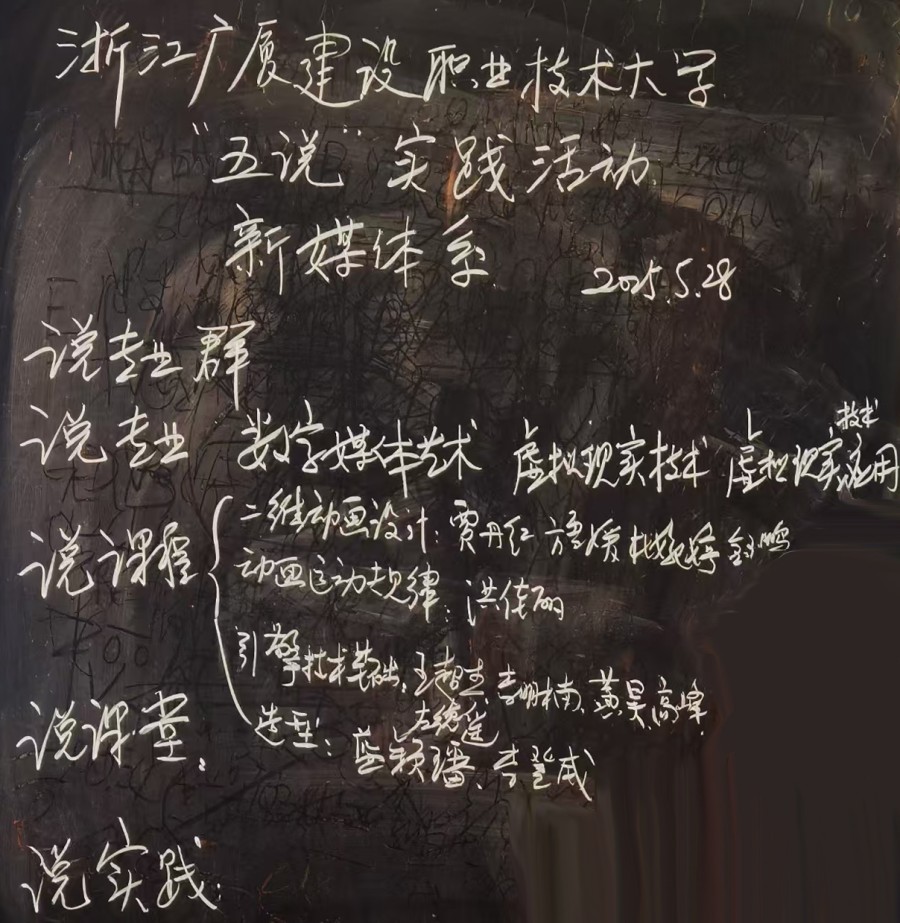 浙江广厦建设职业技术大学
“五说”实践活动
新媒体系 2025.5.28
说专业群
说专业 数字媒体艺术 虚拟现实技术 虚拟现实技术应用
说课程
二维动画设计：贾丹红 方媛
动画运动规律：洪佳
引擎技术基础：王超杰、李明楠、黄昊、高峰
造型：蓝颖璠、李登威
说课堂：
说实践：